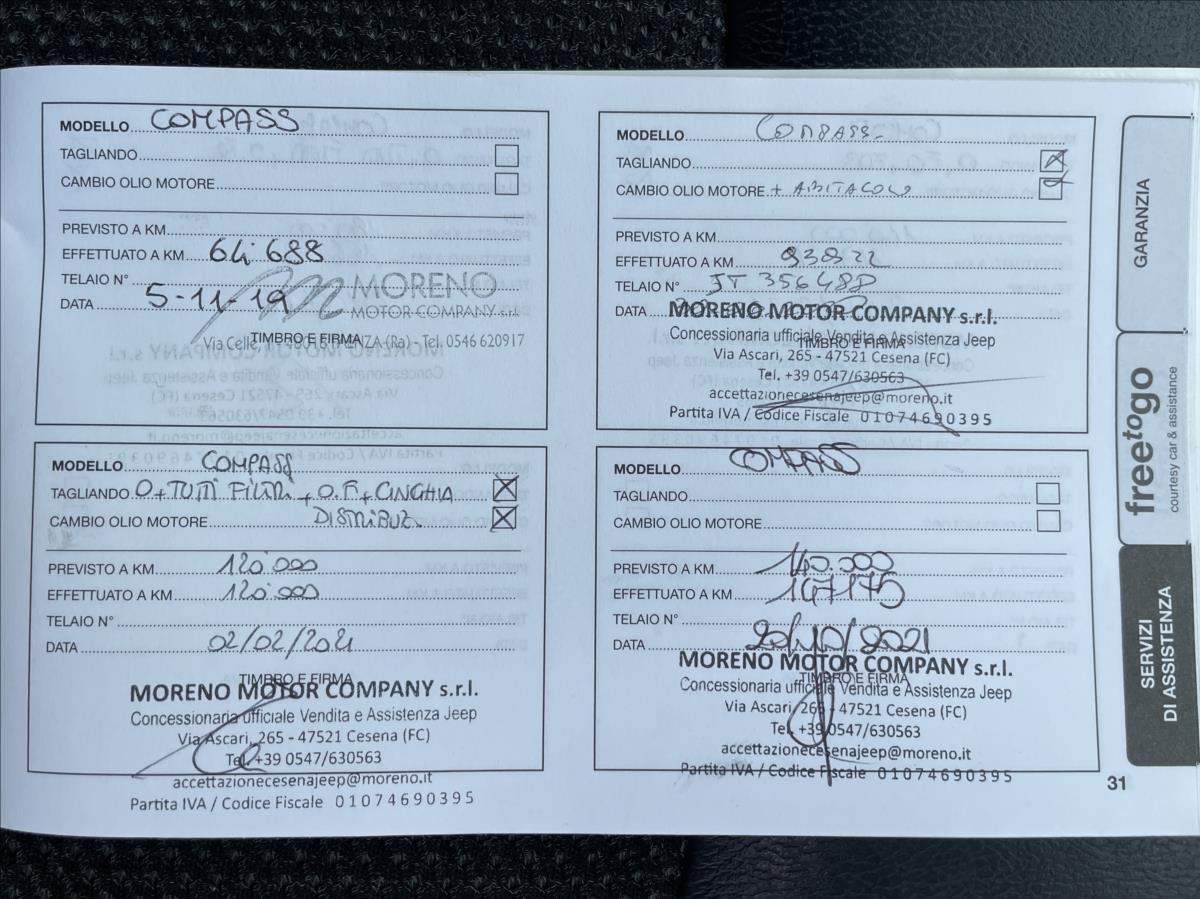 MODELLO COMPASS
TAGLIANDO
CAMBIO OLIO MOTORE
PREVISTO A KM
EFFETTUATO A KM 64.688
TELAIO N°
DATA 5-11-19
MORENO
MOTOR COMPANY s.r.l.
TIMBRO E FIRMA
Via Celle, (Ra) - Tel. 0546 620917
MODELLO COMPASS
TAGLIANDO
CAMBIO OLIO MOTORE + ABITACOLO
PREVISTO A KM
EFFETTUATO A KM 93922
TELAIO N° JT 356488
DATA
MORENO MOTOR COMPANY s.r.l.
TIMBRO E FIRMA
Concessionaria ufficiale Vendita e Assistenza Jeep
Via Ascari, 265 - 47521 Cesena (FC)
Tel. +39 0547/630563
accettazionecesenajeep@moreno.it
Partita IVA / Codice Fiscale 01074690395
MODELLO COMPASS
TAGLIANDO O+TUTTI FILTRI + O.F.+CINGHIA
CAMBIO OLIO MOTORE DISTRIBUZ.
PREVISTO A KM 120.000
EFFETTUATO A KM 120.000
TELAIO N°
DATA 02/02/2021
TIMBRO E FIRMA
MORENO MOTOR COMPANY s.r.l.
Concessionaria ufficiale Vendita e Assistenza Jeep
Via Ascari, 265 - 47521 Cesena (FC)
Tel. +39 0547/630563
accettazionecesenajeep@moreno.it
Partita IVA / Codice Fiscale 01074690395
MODELLO COMPASS
TAGLIANDO
CAMBIO OLIO MOTORE
PREVISTO A KM 140.000
EFFETTUATO A KM 147175
TELAIO N°
DATA 20/10/2021
MORENO MOTOR COMPANY s.r.l.
TIMBRO E FIRMA
Concessionaria ufficiale Vendita e Assistenza Jeep
Via Ascari, 265 - 47521 Cesena (FC)
Tel. +39 0547/630563
accettazionecesenajeep@moreno.it
Partita IVA / Codice Fiscale 01074690395
31
GARANZIA
freetogo
courtesy car & assistance
SERVIZI
DI ASSISTENZA